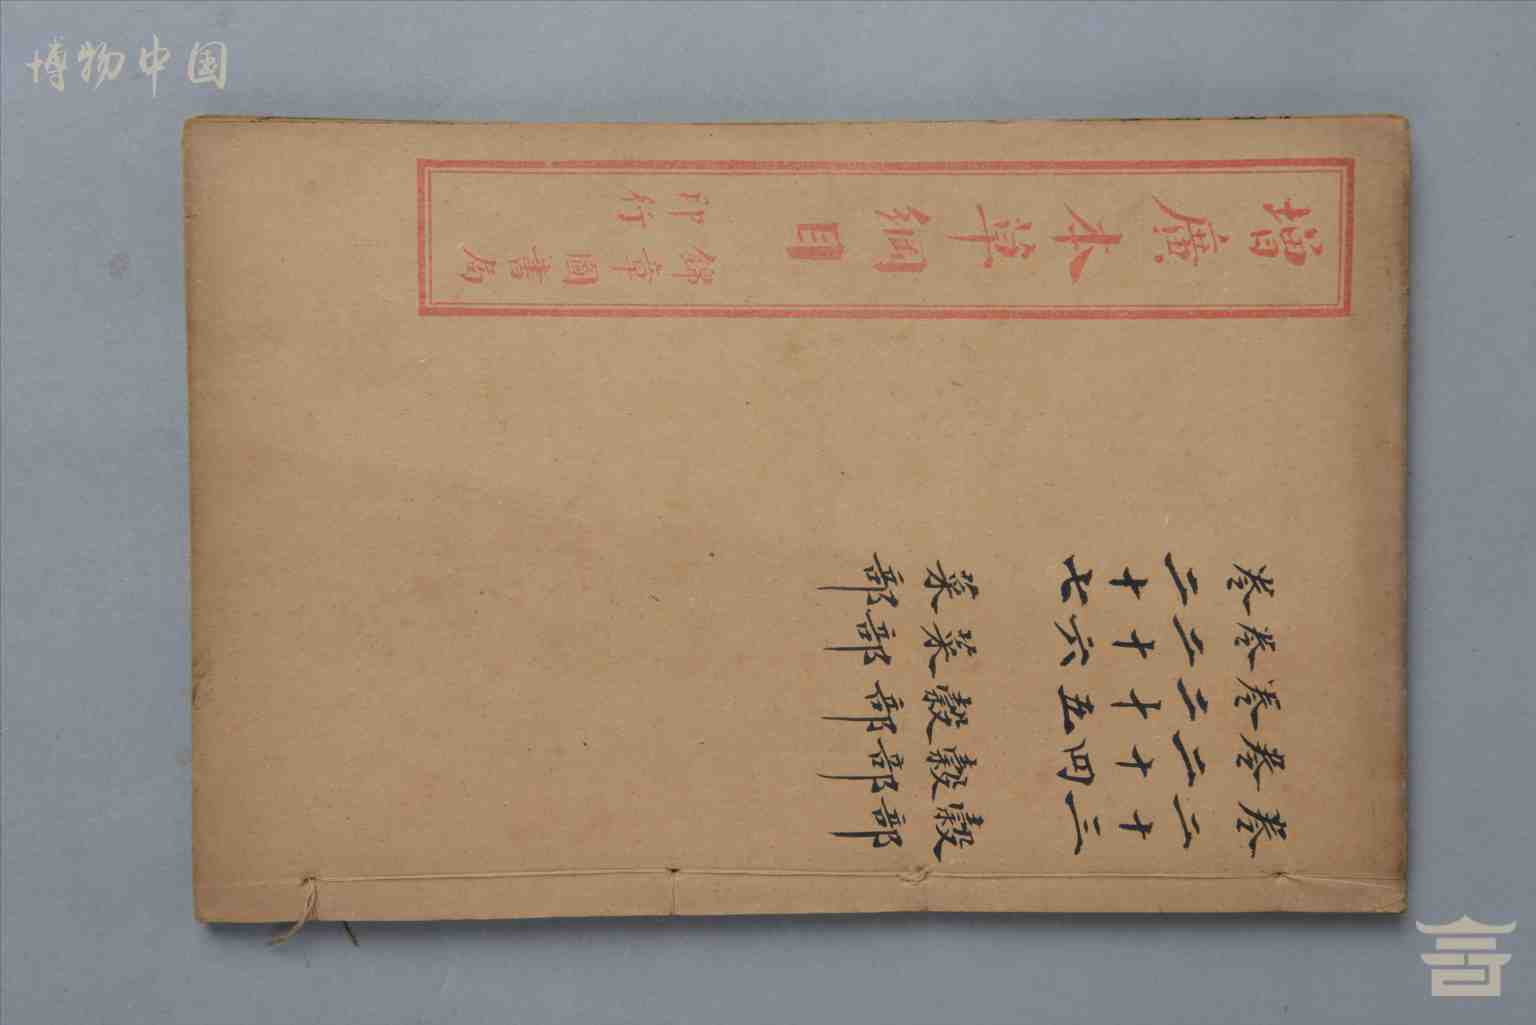 博物中国
卷二十三 穀部
卷二十四 穀部
卷二十五 穀部
卷二十六 菜部
卷二十七 菜部
增廣本草綱目
錦章圖書局
印行